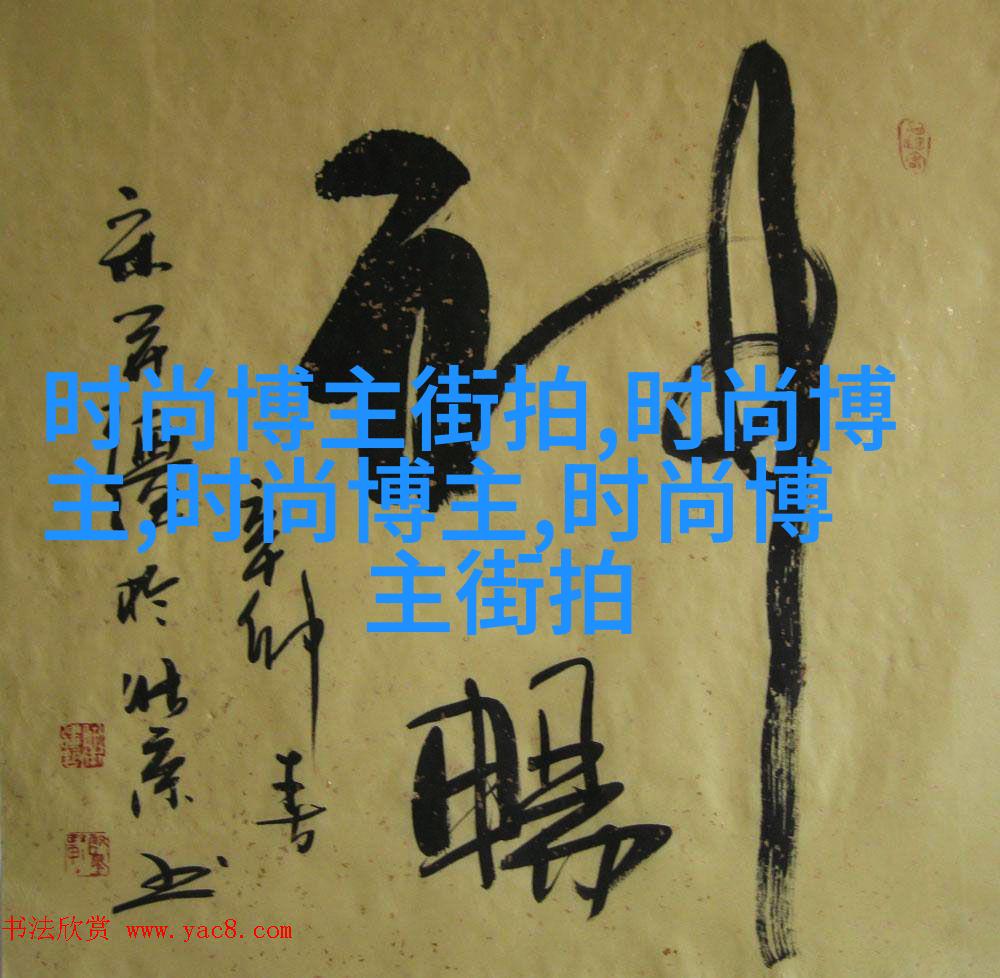 时尚博主街拍,时尚博
主,时尚博主,时尚博
主街拍
神暢
辛卯春
於北京书
书法欣赏 www.yac8.com